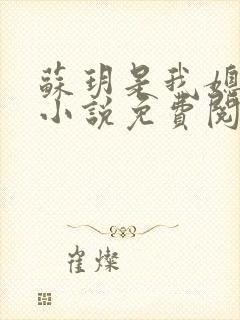 蘇玥是我媳
小說免費閱
崔燦